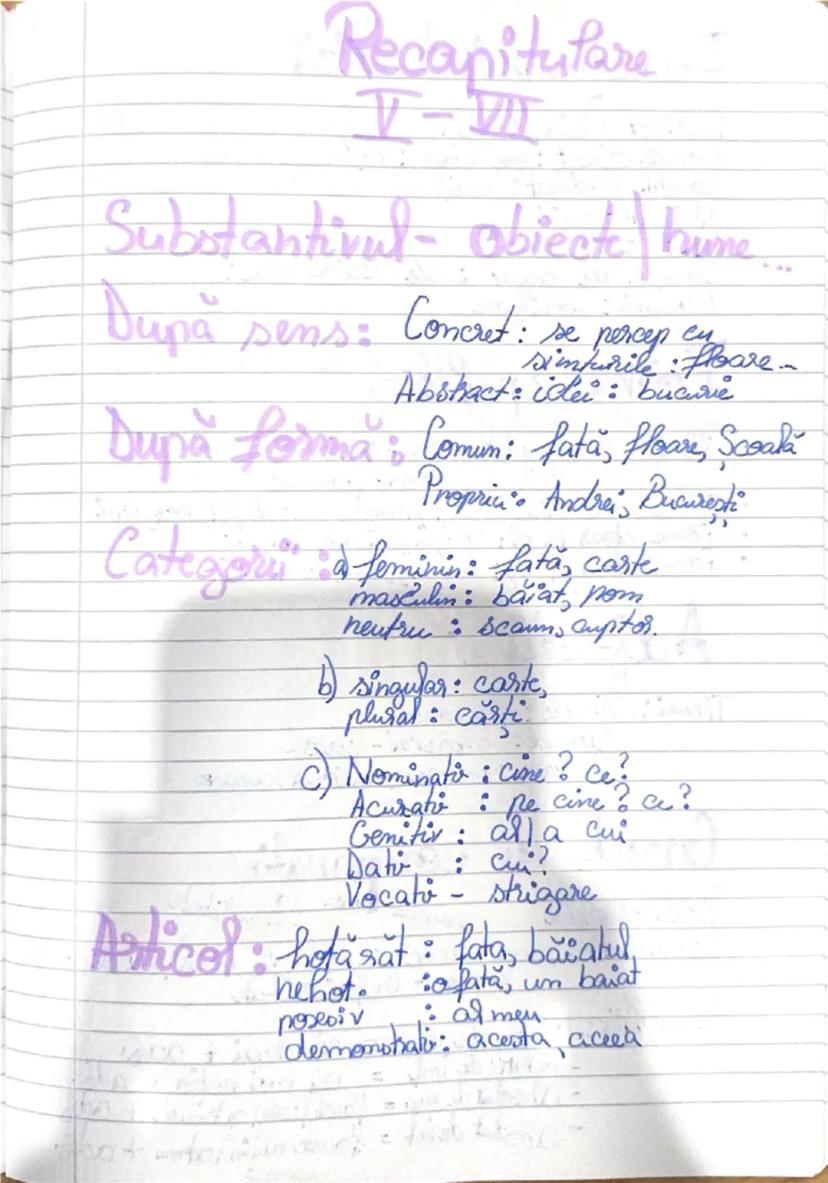 Recapitulare
V - VII
Substantivul - obiecte / nume...
După sens: Concret: se percep cu
simturile: floare -
Abstract: idei: bucurie
După formă: Comun: fată, floare, Școală
Propriu: Andrei, București
Categorii: a) feminin: fată, carte
masculin: băiat, pom
neutru: scaun, cuptor.
b) singular: carte,
plural: cărți.
c) Nominativ: cine? ce?
Acuzativ: pe cine? ce?
Genitiv: al/a cui
Dativ: cui?
Vocativ - strigare
Articol: hotărât: fata, băiatul
nehot.: o fată, un baiat
posesiv: al meu
demonstrativ: acesta, aceea